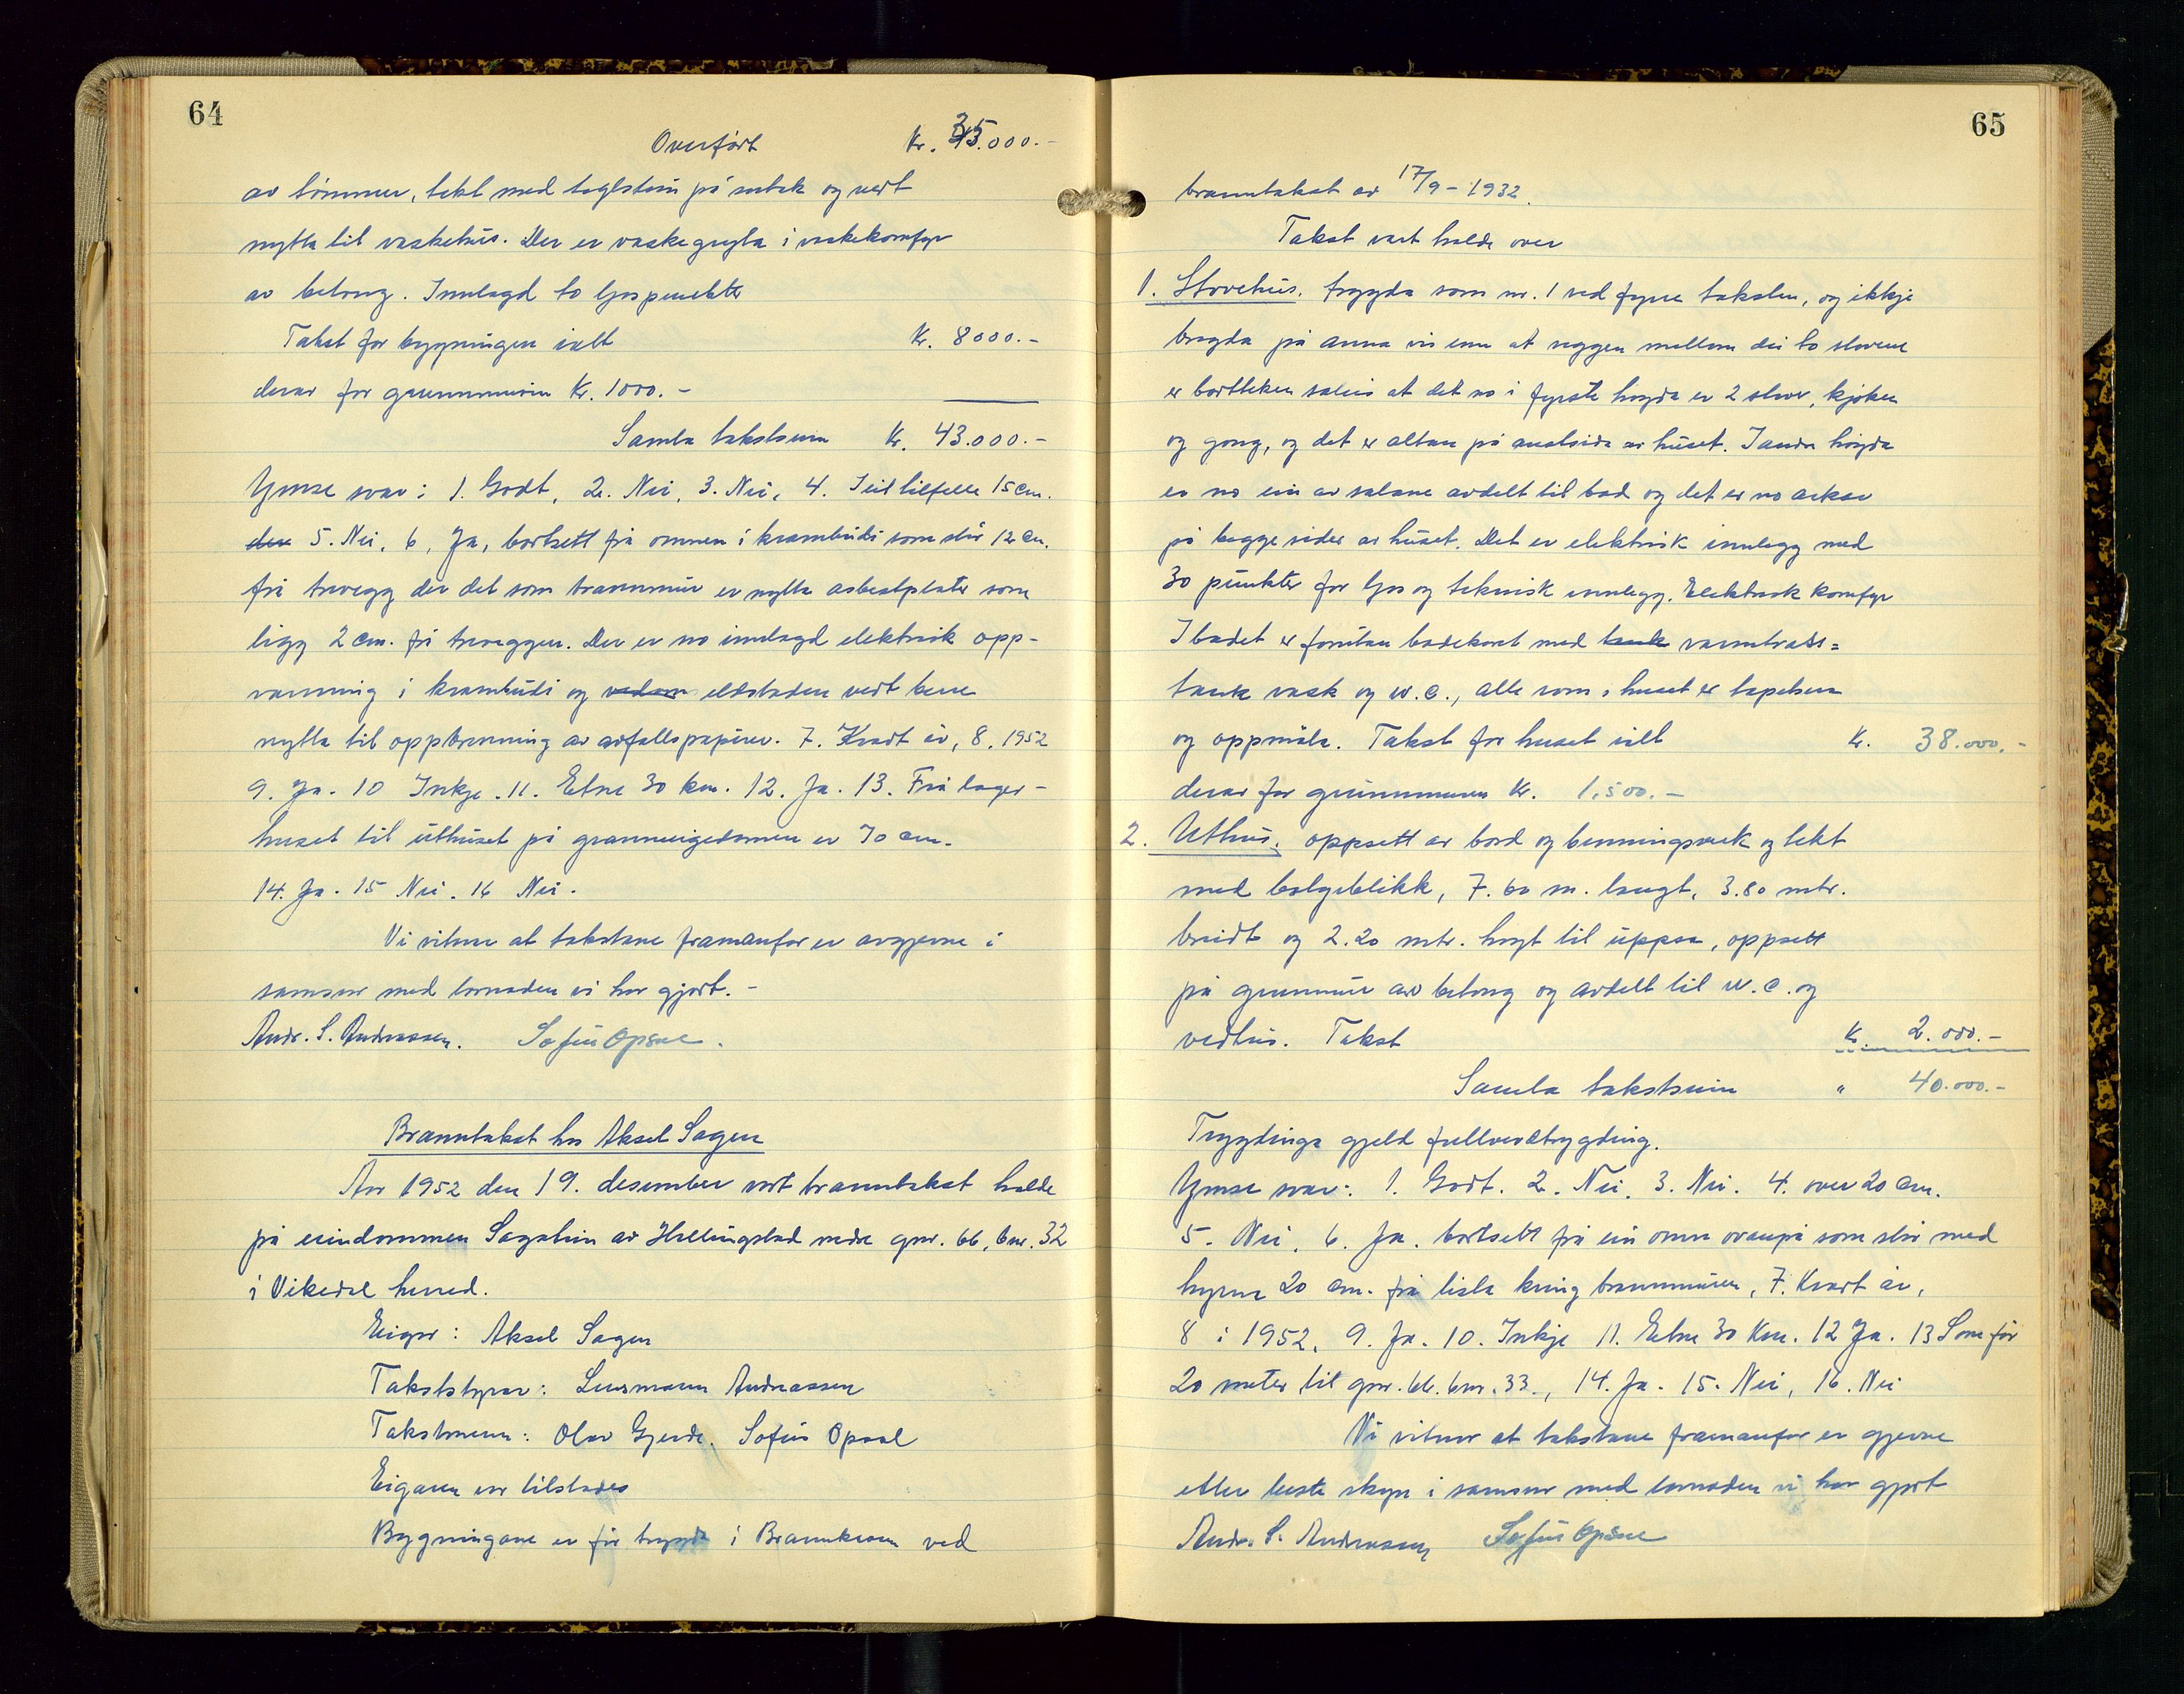 64
Overført Kr. 35.000.-
av tømmer, tekt med taglstein på sutak og vert
nytta til vaskehus. Der er vaskegryta i vaskekomfyr
av betong. Innlagd to ljospunkter
Takst for bygningen ialt Kr. 8000.-
derav for grunnmuren Kr. 1000.-
Samla takstsum Kr. 43.000.-
Ymse svar: 1. Godt, 2. Nei, 3. Nei, 4. I eit tilfelle 15 cm.
5. Nei, 6, Ja, bortsett frå omnen i krambudi som står 12 cm.
frå trevegg der det som brannmur er nytta asbestplater som
ligg 2 cm. frå treveggen. Der er no innlagd elektrisk opp-
varming i krambudi og eldstaden vert berre
nytta til oppbrenning av avfallspapirer. 7. Kvart år, 8. 1952
9. Ja. 10 Inkje. 11. Etne 30 km. 12. Ja. 13. Frå lager-
huset til uthuset på granneigedomen er 70 cm.
14. Ja. 15 Nei. 16 Nei.
Vi vitnar at takstane framanfor er avgjevne i
samsvar med lovnaden vi har gjort.-
Andr. S. Andreassen. Sofus Opsal.
Branntakst hos Aksel Sagen
Aar 1952 den 19. desember vart branntakst halde
på eiendommen Sagatun av Hallingstad nedre gnr. 66, bnr. 32
i Vikedal herred.
Eigar: Aksel Sagen
Takststyrar: Lensmann Andreassen
Takstmenn: Olav Gjerde, Sofus Opsal
Eigaren var tilstades
Bygningane er før trygda i Brannkassa ved
65
branntakst av 17/9-1932.
Takst vart halde over
1. Stovehus. trygda som nr. 1 ved fyrre taksten, og ikkje
brigda på anna vis enn at veggen mellom dei to stovene
er bortteken soleis at det no i fyrste høgda er 2 stover, kjøken
og gang, og det er altan på austsida av huset. I andre høgda
er no ein av salane avdelt til bad og det er no arkar
på begge sider av huset. Det er elektrisk innlegg med
30 punkter for ljos og teknisk innlegg. Elektrisk komfyr
I badet er forutan badekaret med tank varmtvass=
tank vask og w.c., alle rom i huset er tapetsera
og oppmåla. Takst for huset ialt Kr. 38.000.-
derav for grunnmuren Kr. 1.500.-
2. Uthus, oppsett av bord og benningsverk og tekt
med bølgeblikk, 7.60 m. langt, 3.80 mtr.
breidt og 2.20 mtr. høgt til uppsa, oppsett
på grunnmur av betong og avdelt til w.c. og
vedhus. Takst Kr. 2.000.-
Samla takstsum " 40.000.-
Trygdinga gjeld fullverdtrygding.
Ymse svar: 1. Godt. 2. Nei. 3. Nei. 4. over 20 cm.
5. Nei. 6. Ja. bortsett frå ein omn ovanpå som står med
hyrna 20 cm. frå lista kring brannmuren, 7. Kvart år,
8 i 1952, 9. Ja. 10. Inkje 11. Etne 30 Km. 12 Ja. 13 Som før
20 meter til gnr. 66. bnr. 33., 14. Ja. 15. Nei, 16. Nei
Vi vitnar at takstane framanfor er gjevne
etter beste skjøn i samsvar med lovnaden vi har gjort
Andr. S. Andreassen Sofus Opsal